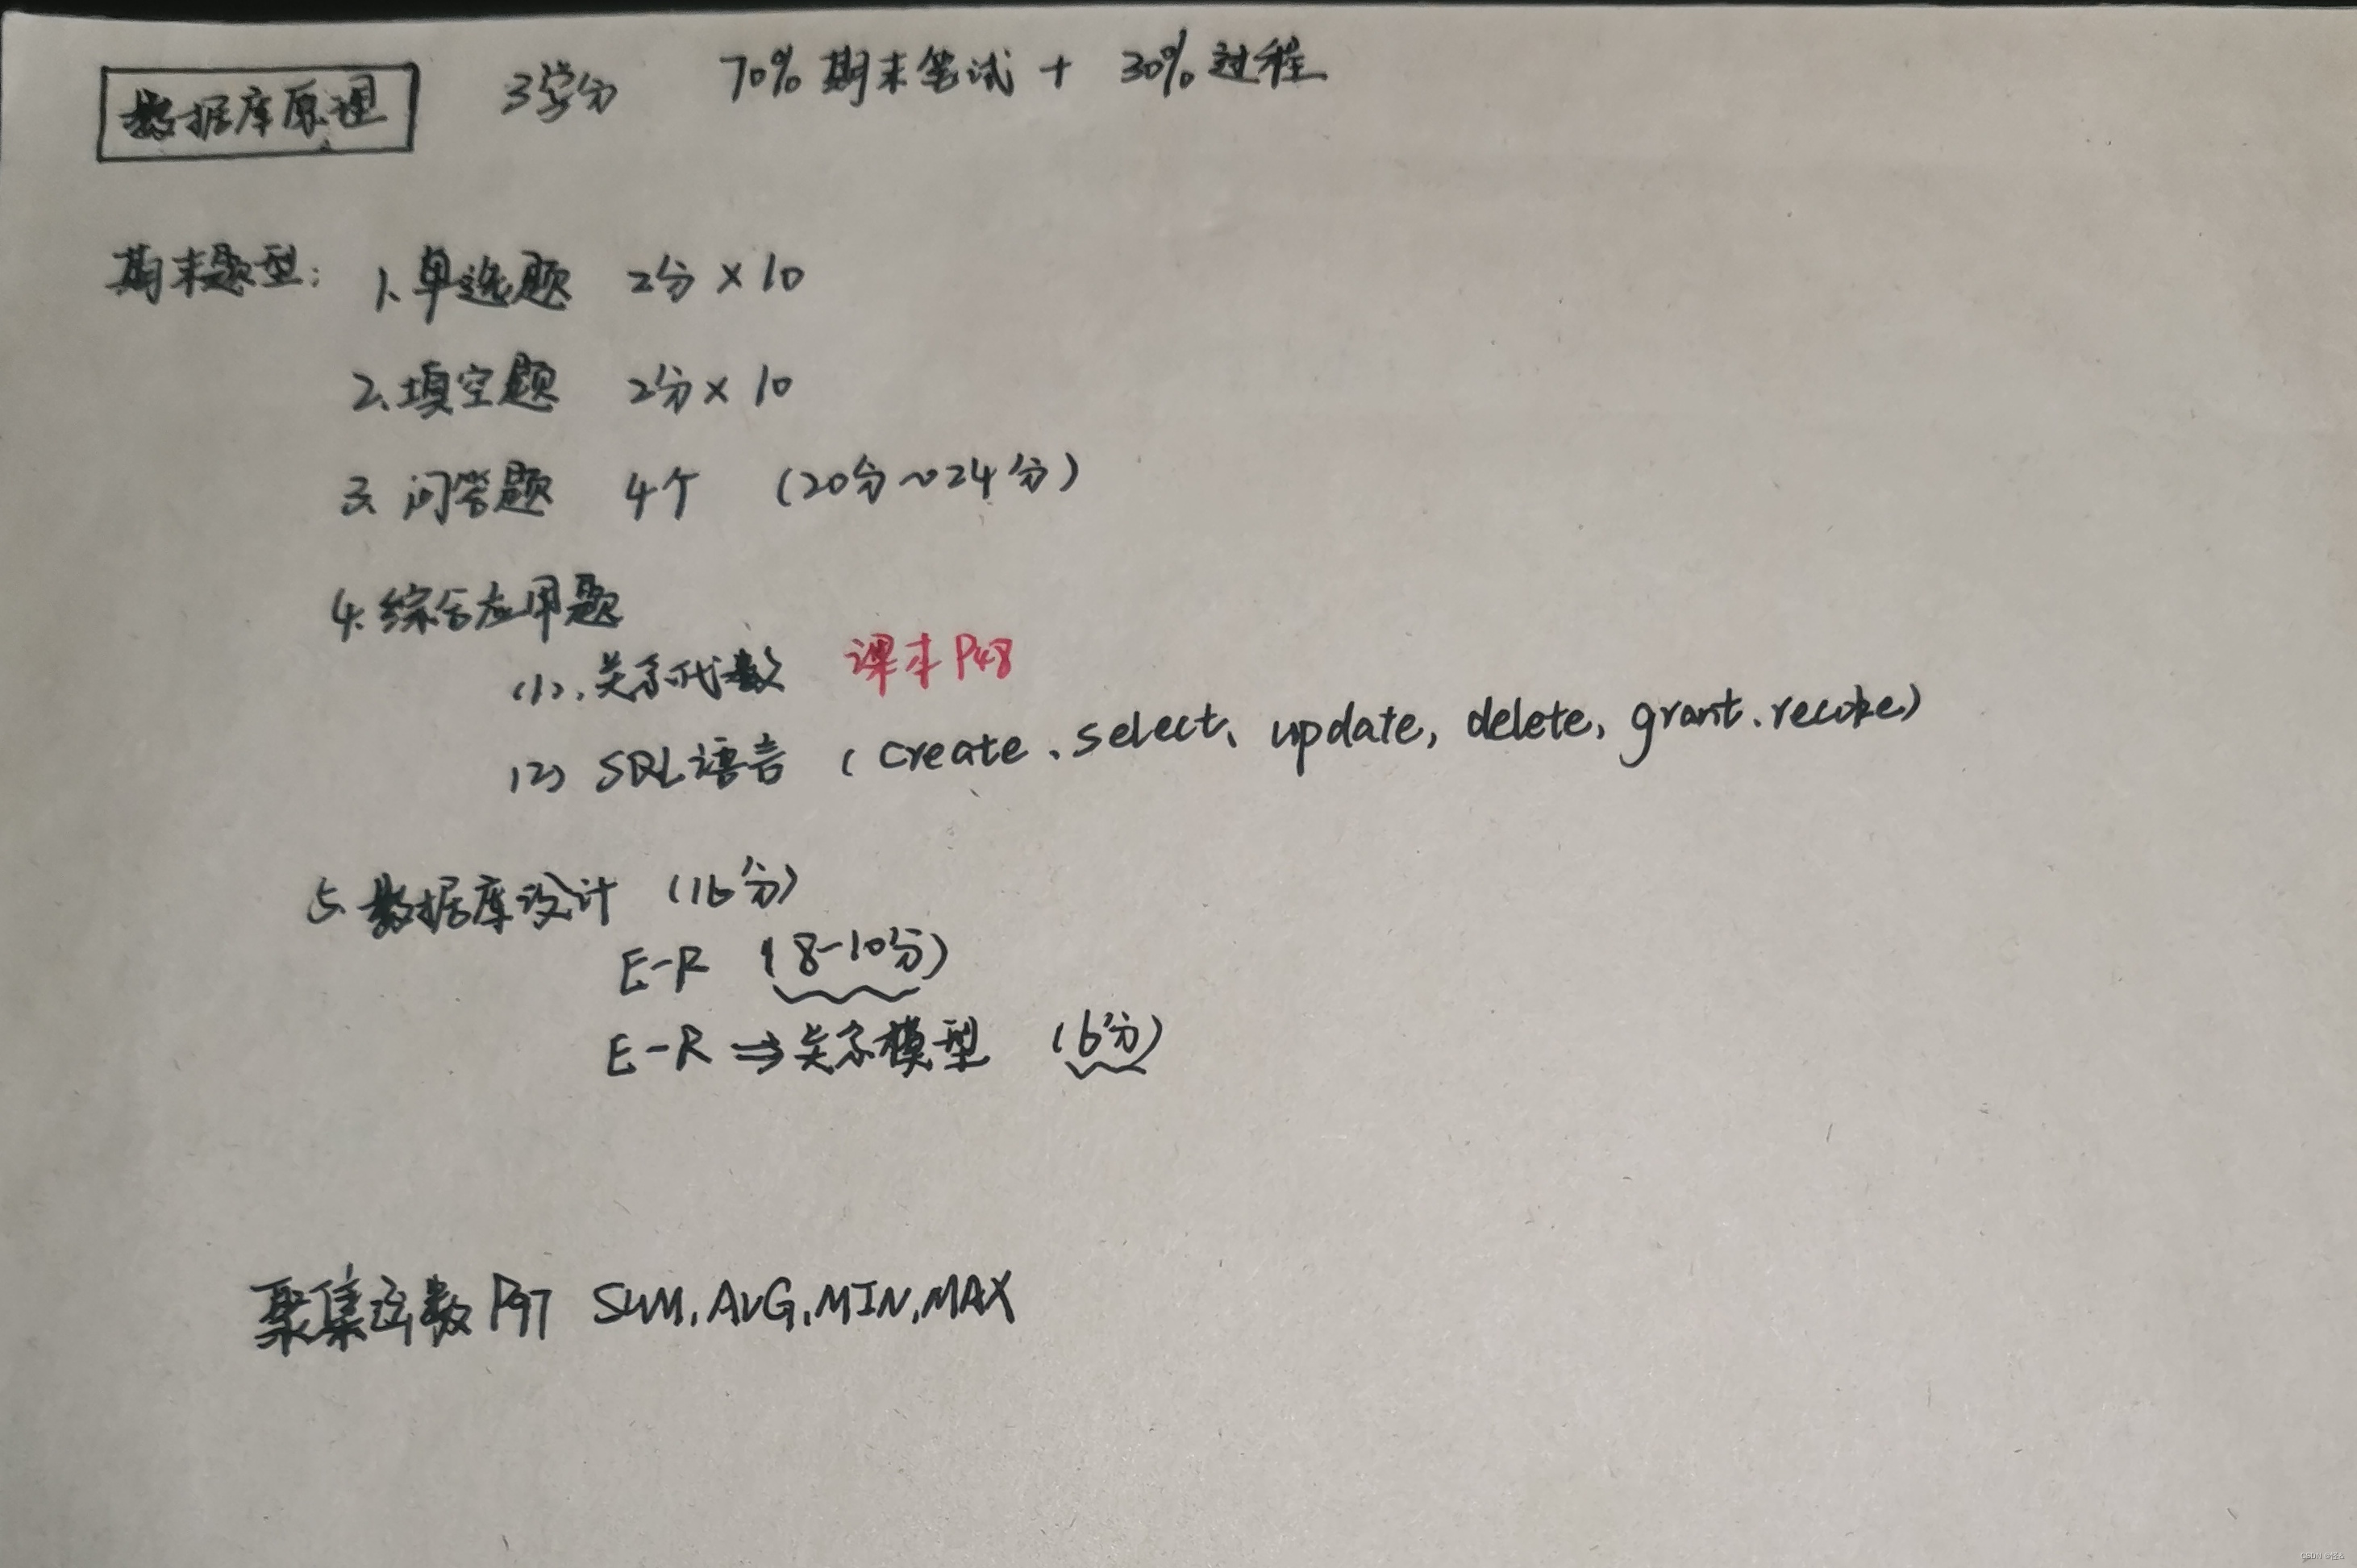 数据库原理 3学分 70%期末笔试 + 30%过程
期末题型: 1、单选题 2分×10
2、填空题 2分×10
3、问答题 4个 (20分~24分)
4、综合应用题
(1)、关系代数 课本P48
(2) SQL语言 (create、select、update, delete, grant、revoke)
5、数据库设计 (16分)
E-R (8-10分)
E-R ⇒ 关系模型 (6分)
聚集函数 P97 SUM, AVG, MIN, MAX